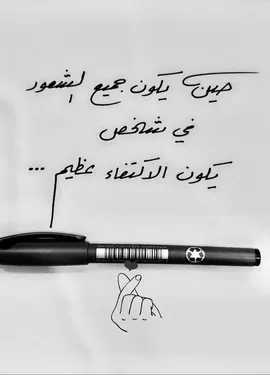 حين يكون جميع الشعور
في شخص
يكون الاكتفاء عظيم ...